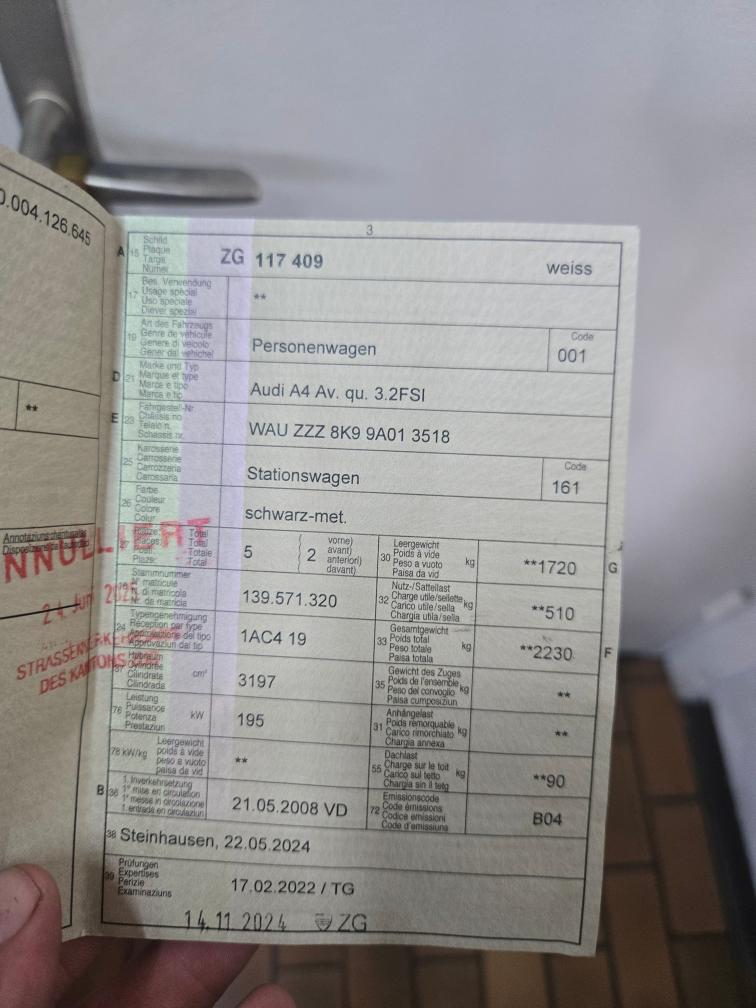 0.004.126.645
**
3
A 15 Schild
Plaque
Targa
Numer
ZG 117 409 weiss
17 Bes. Verwendung
Usage spécial
Uso speciale
Diever spezial
**
19 Art des Fahrzeugs
Genre de véhicule
Genere di veicolo
Gener dal vehichel
Personenwagen
Code
001
D 21 Marke und Typ
Marque et type
Marca e tipo
Marca e tip
Audi A4 Av. qu. 3.2FSI
E 23 Fahrgestell-Nr
Châssis no
Telaio n.
Schassis nr.
WAU ZZZ 8K9 9A01 3518
25 Karosserie
Carrosserie
Carrozzeria
Carossaria
Stationswagen
Code
161
26 Farbe
Couleur
Colore
Colur
schwarz-met.
Total
Total
Totale
Total
5
2
vorne)
avant)
anteriori)
davant)
30 Leergewicht
Poids à vide
Peso a vuoto
Paisa da vid
kg
**1720
G
Stammnummer
N° matricule
N. di matricola
Nr. da matricla
139.571.320
32 Nutz-/Sattellast
Charge utile/sellette
Carico utile/sella
Chargia utila/sella
kg
**510
24 Typengenehmigung
Réception par type
Approvazione del tipo
Approvaziun dal tip
1AC4 19
33 Gesamtgewicht
Poids total
Peso totale
Paisa totala
kg
**2230
F
37 Hubraum
Cylindrée
Cilindrata
Cilindrada
cm³
3197
35 Gewicht des Zuges
Poids de l'ensemble
Peso del convoglio
Paisa cumposiziun
kg
**
76 Leistung
Puissance
Potenza
Prestaziun
kW
195
31 Anhängelast
Poids remorquable
Carico rimorchiato
Chargia annexa
kg
**
78 kW/kg
Leergewicht
poids à vide
peso a vuoto
paisa da vid
**
55 Dachlast
Charge sur le toit
Carico sul tetto
Chargia sin il tetg
kg
**90
B 36 1. Inverkehrsetzung
1re mise en circulation
1a messa in circolazione
1. entrada en circulaziun
21.05.2008 VD
72 Emissionscode
Code émissions
Codice emissioni
Code d'emissiuns
B04
38 Steinhausen, 22.05.2024
39 Prüfungen
Expertises
Perizie
Examinaziuns
17.02.2022 / TG
14.11.2024 ZG
NNULLIERT
24. Juni
STRASSENVERKEHRS
DES KANTONS